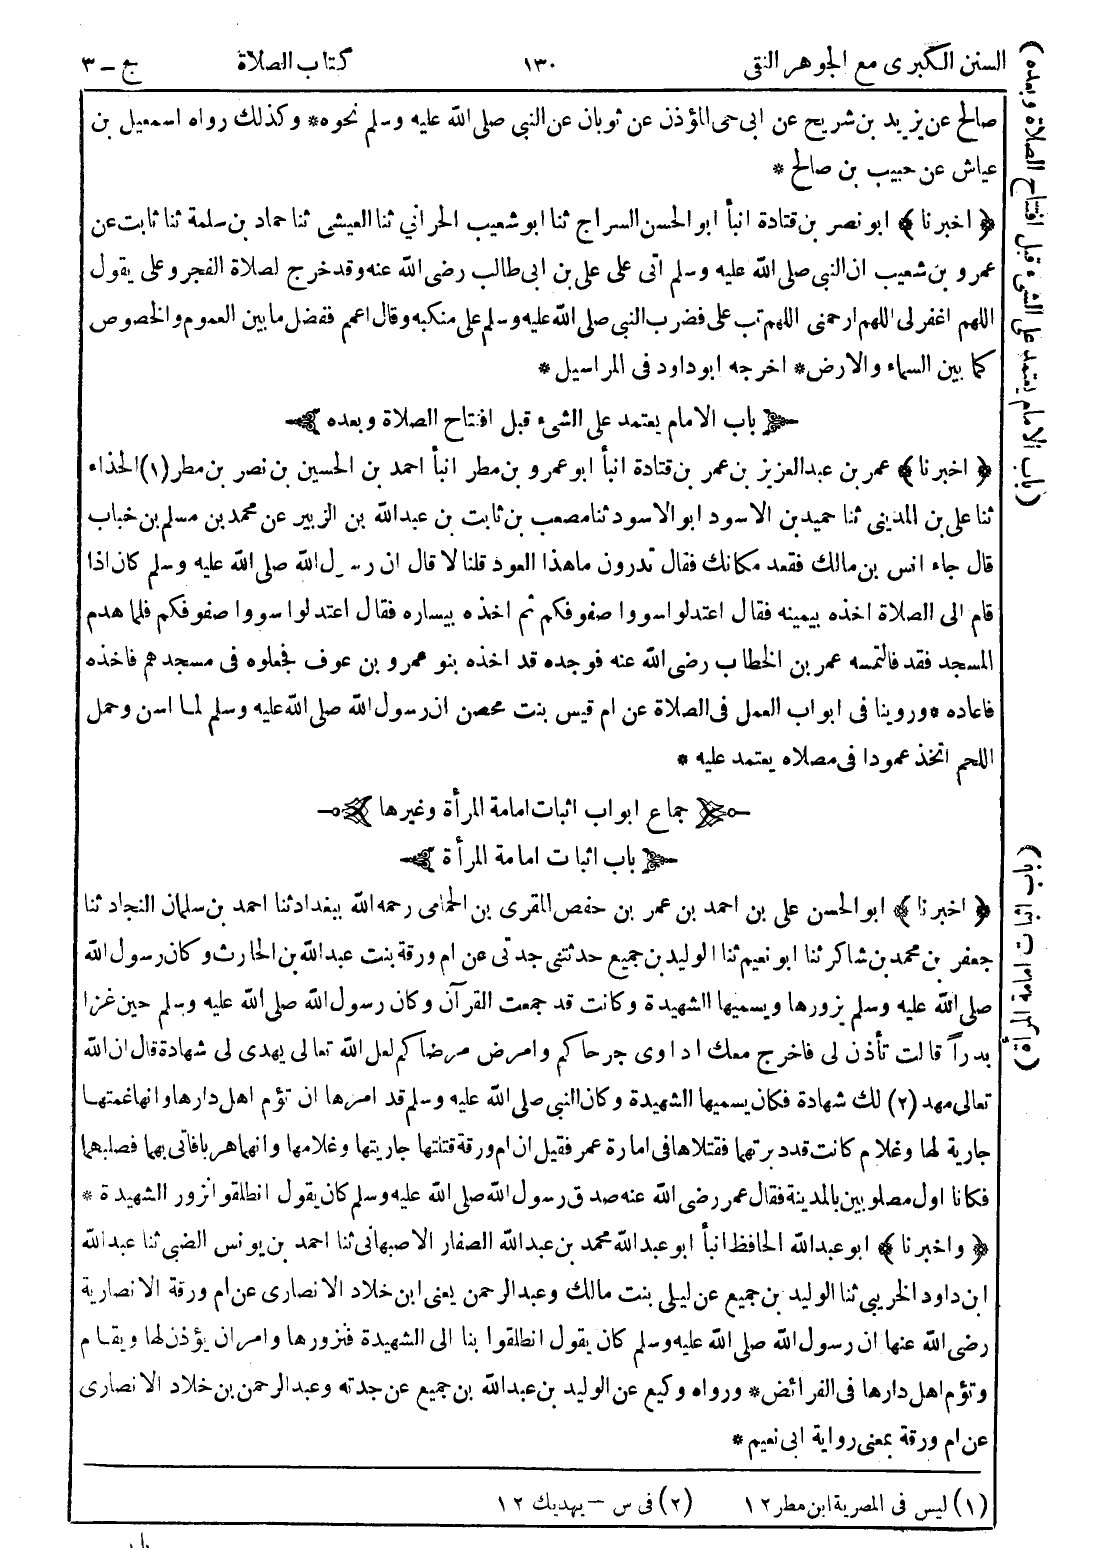 السنن الكبرى مع الجوهر النقى ١٣٠ كتاب الصلاة ج - ٣
صالح عن يزيد بن شريح عن ابى حى المؤذن عن ثوبان عن النبى صلى الله عليه وسلم نحوه * وكذلك رواه اسمعيل بن
عياش عن حبيب بن صالح *
﴿ اخبرنا ﴾ ابو نصر بن قتادة انبأ ابو الحسن السراج ثنا ابو شعيب الحرانى ثنا العيشى ثنا حماد بن سلمة ثنا ثابت عن
عمرو بن شعيب ان النبى صلى الله عليه وسلم اتى على على بن ابى طالب رضى الله عنه وقد خرج لصلاة الفجر وعلى يقول
اللهم اغفر لى اللهم ارحمنى اللهم تب على فضرب النبى صلى الله عليه وسلم على منكبه وقال اعمم ففضل ما بين العموم والخصوص
كما بين السماء والارض * اخرجه ابو داود فى المراسيل *
باب الامام يعتمد على الشىء قبل افتتاح الصلاة وبعده
﴿ اخبرنا ﴾ عمر بن عبد العزيز بن عمر بن قتادة انبأ ابو عمرو بن مطر انبأ احمد بن الحسين بن نصر بن مطر (١) الحذاء
ثنا على بن المدينى ثنا حميد بن الاسود ابو الاسود ثنا مصعب بن ثابت بن عبد الله بن الزبير عن محمد بن مسلم بن خباب
قال جاء انس بن مالك فقعد مكانك فقال تدرون ما هذا العود قلنا لا قال ان رسول الله صلى الله عليه وسلم كان اذا
قام الى الصلاة اخذه بيمينه فقال اعتدلوا سووا صفوفكم ثم اخذه بيساره فقال اعتدلوا سووا صفوفكم فلما هدم
المسجد فقد فالتمسه عمر بن الخطاب رضى الله عنه فوجده قد اخذه بنو عمرو بن عوف فجعلوه فى مسجدهم فاخذه
فاعاده * وروينا فى ابواب العمل فى الصلاة عن ام قيس بنت محصن ان رسول الله صلى الله عليه وسلم لما اسن وحمل
اللحم اتخذ عمودا فى مصلاه يعتمد عليه *
جماع ابواب اثبات امامة المرأة وغيرها
باب اثبات امامة المرأة
﴿ اخبرنا ﴾ ابو الحسن على بن احمد بن عمر بن حفص المقرى بن الحمامى رحمه الله ببغداد ثنا احمد بن سلمان النجاد ثنا
جعفر بن محمد بن شاكر ثنا ابو نعيم ثنا الوليد بن جميع حدثتنى جدتى عن ام ورقة بنت عبد الله بن الحارث وكان رسول الله
صلى الله عليه وسلم يزورها ويسميها الشهيدة وكانت قد جمعت القرآن وكان رسول الله صلى الله عليه وسلم حين غزا
بدراً قالت تأذن لى فاخرج معك اداوى جرحاكم وامرض مرضاكم لعل الله تعالى يهدى لى شهادة قال ان الله
تعالى مهد (٢) لك شهادة فكان يسميها الشهيدة وكان النبى صلى الله عليه وسلم قد امرها ان تؤم اهل دارها وانها غمتها
جارية لها وغلام كانت قد دبرتهما فقتلاها فى امارة عمر فقيل ان ام ورقة قتلتها جاريتها وغلامها وانهما هربا فاتى بهما فصلبهما
فكانا اول مصلوبين بالمدينة فقال عمر رضى الله عنه صدق رسول الله صلى الله عليه وسلم كان يقول انطلقوا نزور الشهيدة *
﴿ واخبرنا ﴾ ابو عبد الله الحافظ انبأ ابو عبد الله محمد بن عبد الله الصفار الاصبهانى ثنا احمد بن يونس الضبى ثنا عبد الله
ابن داود الخريبى ثنا الوليد بن جميع عن ليلى بنت مالك وعبد الرحمن يعنى ابن خلاد الانصارى عن ام ورقة الانصارية
رضى الله عنها ان رسول الله صلى الله عليه وسلم كان يقول انطلقوا بنا الى الشهيدة فنزورها وامر ان يؤذن لها ويقام
وتؤم اهل دارها فى الفرائض * ورواه وكيع عن الوليد بن عبد الله بن جميع عن جدته وعبد الرحمن بن خلاد الانصارى
عن ام ورقة بمعنى رواية ابى نعيم *
(١) ليس فى المصرية ابن مطر ١٢ (٢) فى س - يهديك ١٢
(باب الامام يعتمد على الشىء قبل افتتاح الصلاة وبعده)
(باب اثبات امامة المرأة)